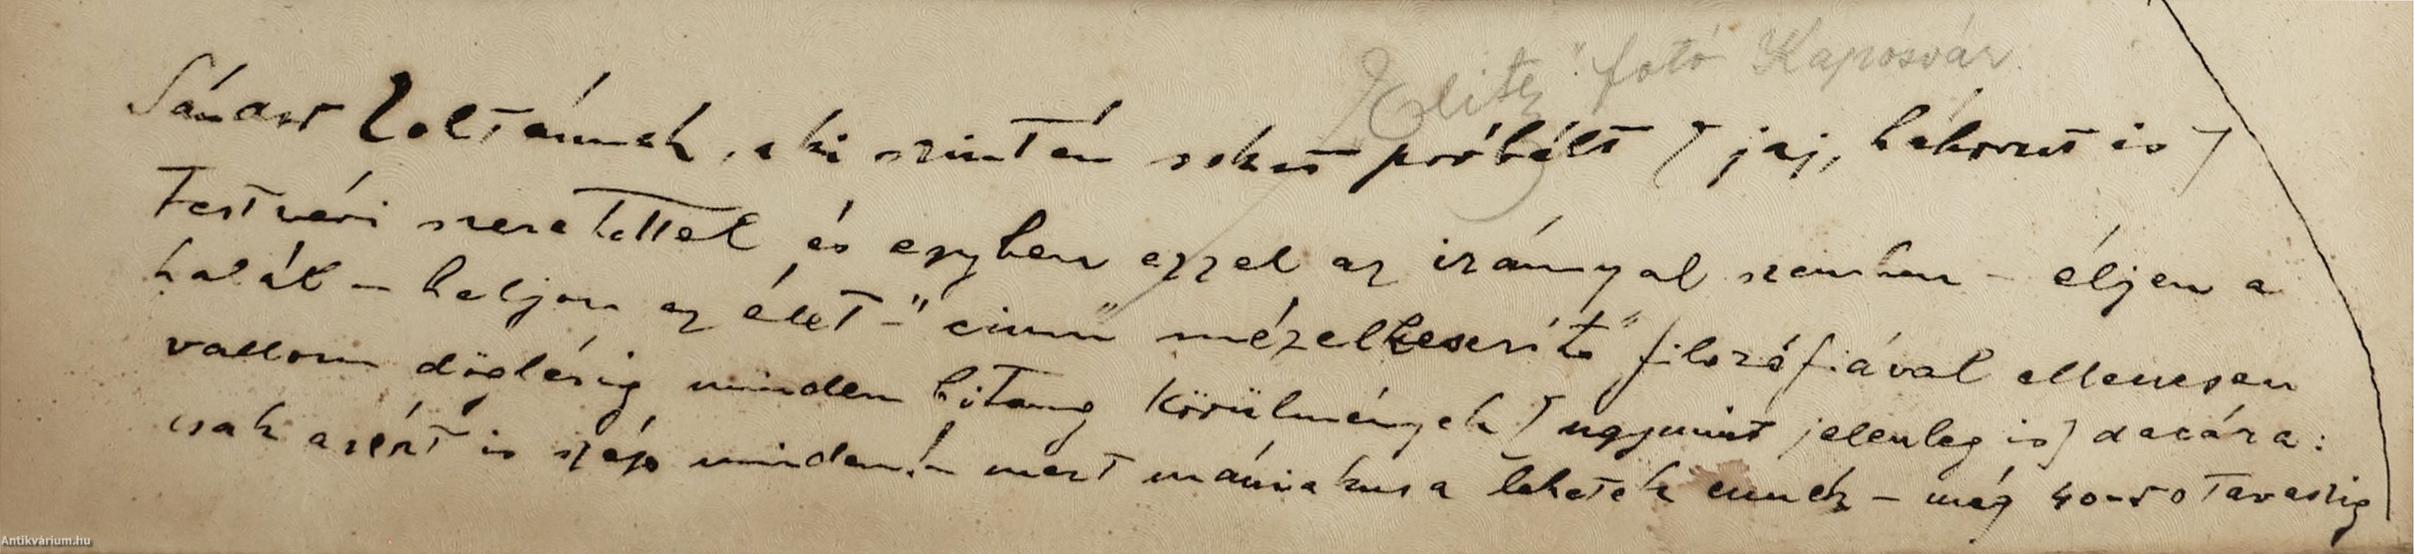 "Elite" fotó Kaposvár
Sándor Zoltánnak, aki szintén sokat próbált (jaj, háborut is)
testvéri szeretettel és egyben ezzel az iránnyal szemben – éljen a
halál – haljon az élet –" cimü "mézelkeseritö" filozófiával ellentétesen
vallom döglésig minden bitang körülmények (ugymint jelenleg is) dacára:
csak azért is szép minden! – mert mániákusa lehetek ennek – még 40–50 tavaszig
Antikvárium.hu